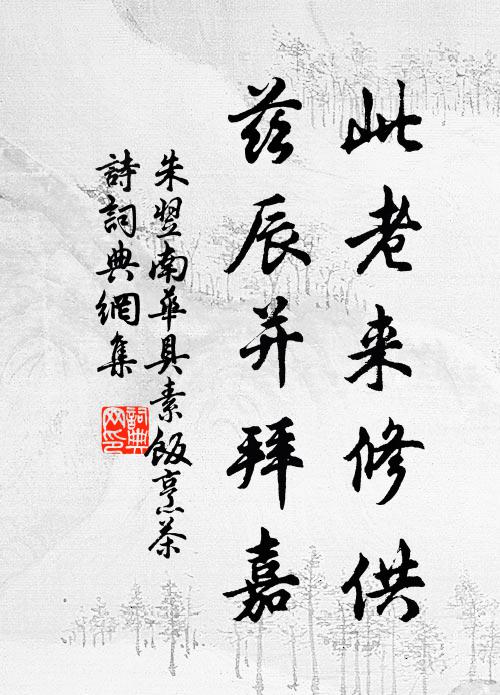 此老来修供
茲辰并拜嘉
朱翌南華具素飯烹茶
詩詞典網集
詞典网印